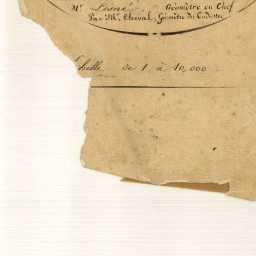 Mr Losne Géomètre en Chef
Par Mr. Cheval, Géomètre du Cadastre
Echelle de 1 à 10,000